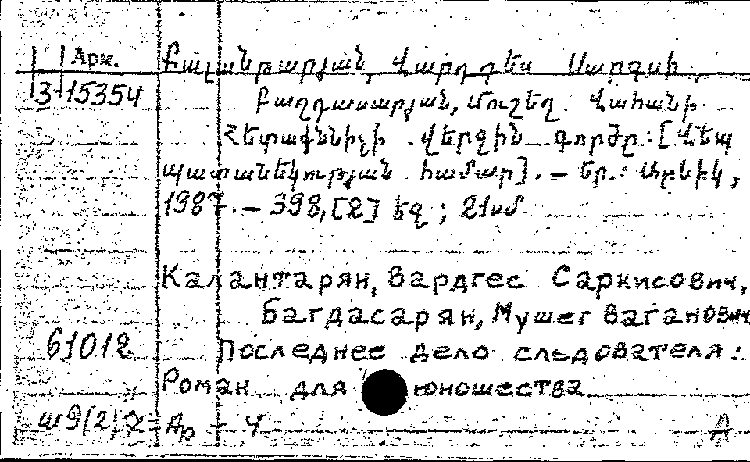 Арм. Քալանթարյան, Վարդգես Սարգսի,
3-15354 Բաղդասարյան, Մուշեղ Վահանի
Հետաքննիչի վերջին գործը: [Վեպ
պատանեկության համար]. – Եր.: Արևիկ,
1987. – 398, [2] եզ ; 21սմ
Калантарян, Вардгес Саркисович,
Багдасарян, Мушег Ваганович
61012 Последнее дело следователя:
Роман для юношества
ш9(2)7=Ар – 4 A